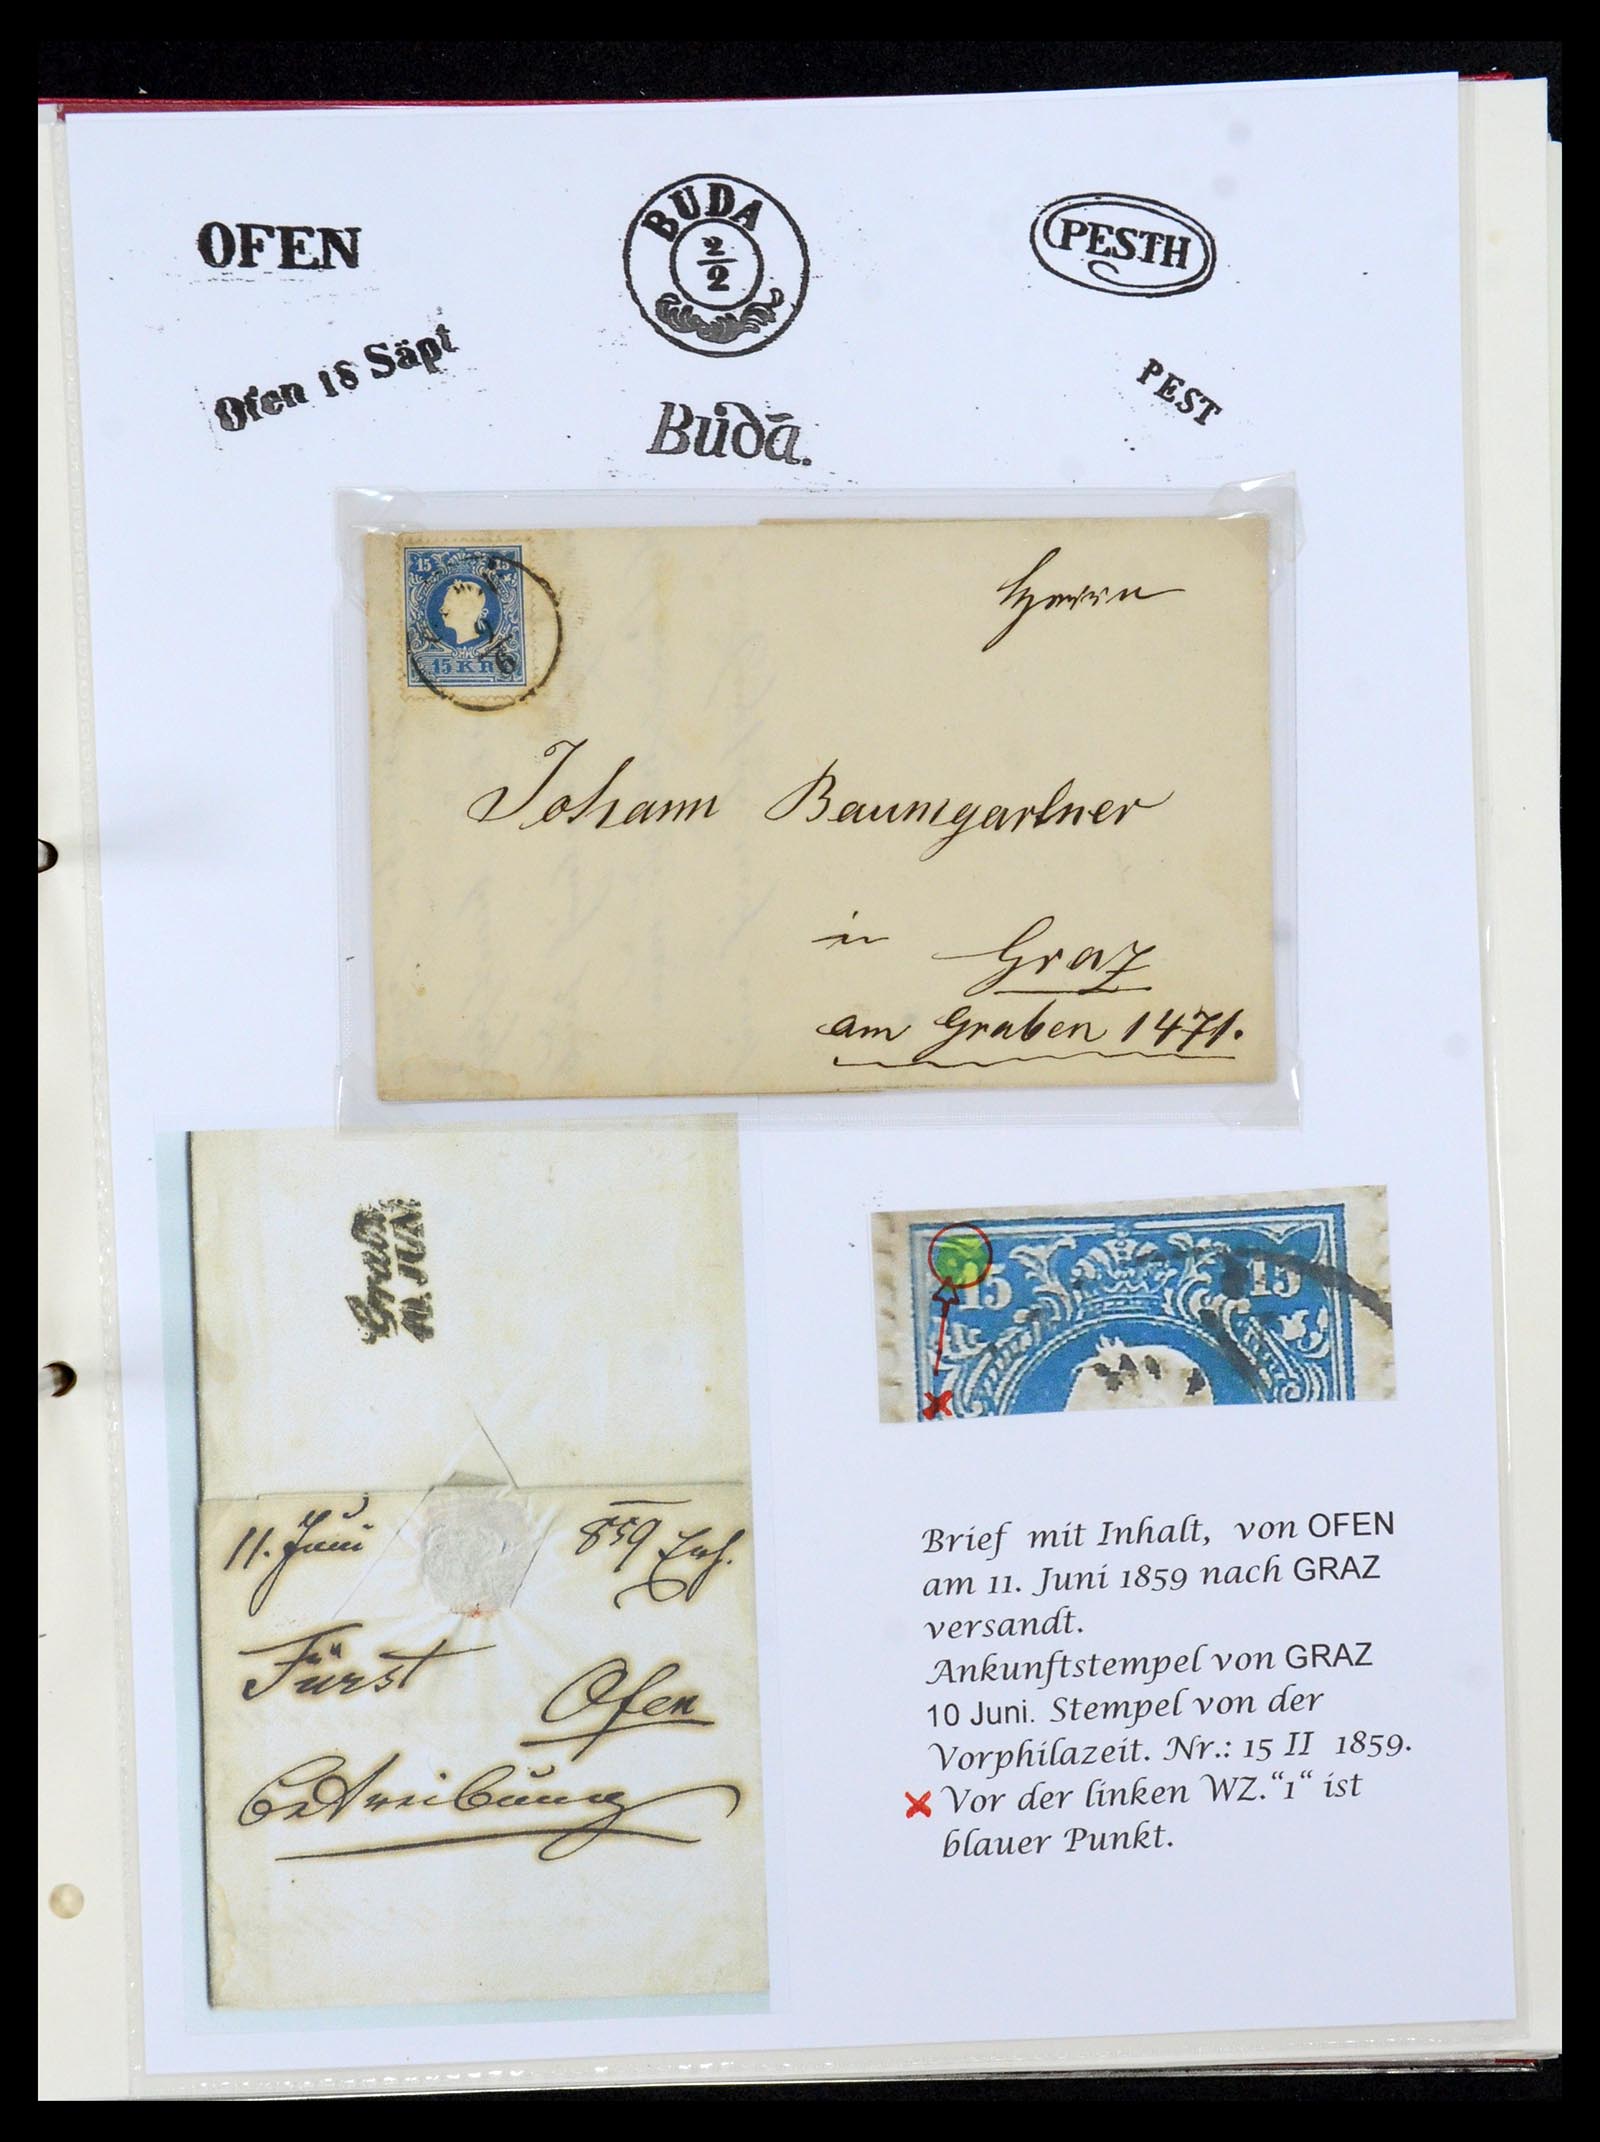 OFEN
BUDA
2
2
PESTH
Ofen 18 Säpt
Buda.
PEST
15 15
9
6
15 KR
Herrn
Johann Baumgartner
in Graz
am Graben 1471.
Gratz
10. JUN
15 15
11. Juni 859
Fürst
Ofen
Betreibung
Brief mit Inhalt, von OFEN
am 11. Juni 1859 nach GRAZ
versandt.
Ankunftstempel von GRAZ
10 Juni. Stempel von der
Vorphilazeit. Nr.: 15 II 1859.
x Vor der linken WZ.“1“ ist
blauer Punkt.